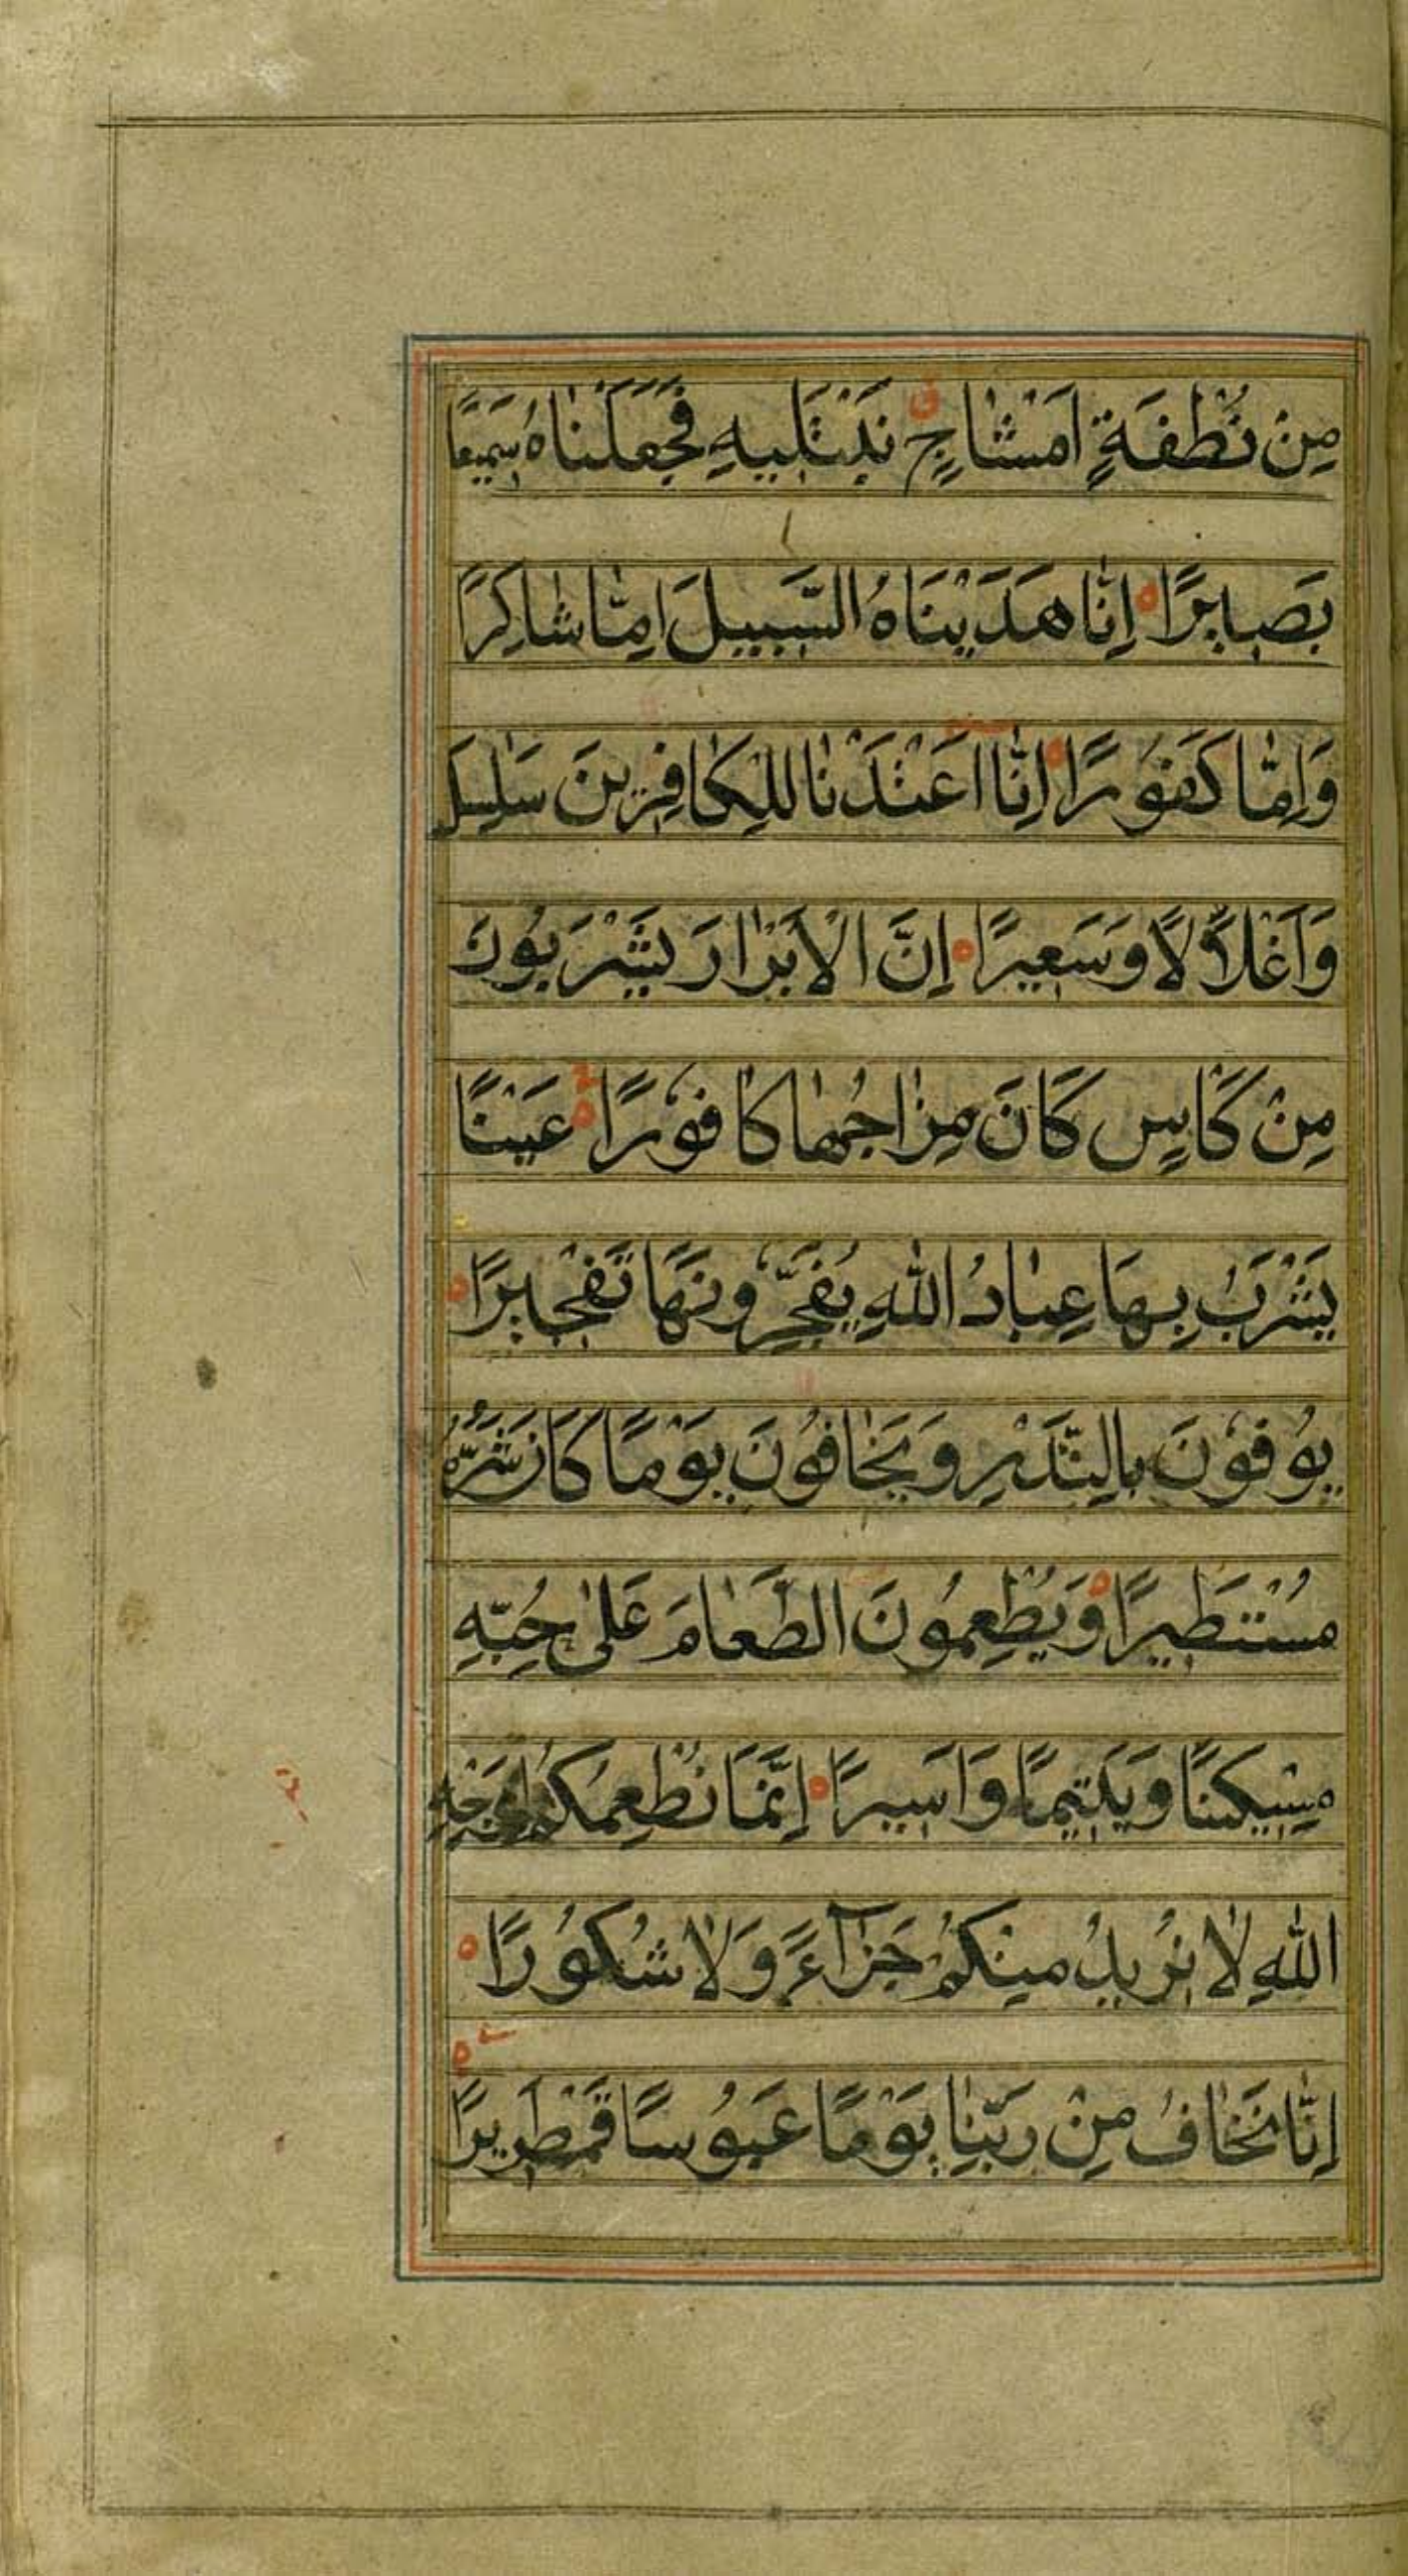 مِنْ نُطْفَةٍ اَمْشَاجٍ نَبْتَلِيهِ فَجَعَلْنَاهُ سَمِيعًا
بَصِيرًا اِنَّا هَدَيْنَاهُ السَّبِيلَ اِمَّا شَاكِرًا
وَاِمَّا كَفُورًا اِنَّا اَعْتَدْنَا لِلْكَافِرِينَ سَلَاسِلَ
وَاَغْلَالًا وَسَعِيرًا اِنَّ الْاَبْرَارَ يَشْرَبُونَ
مِنْ كَاْسٍ كَانَ مِزَاجُهَا كَافُورًا عَيْنًا
يَشْرَبُ بِهَا عِبَادُ اللّٰهِ يُفَجِّرُونَهَا تَفْجِيرًا
يُوفُونَ بِالنَّذْرِ وَيَخَافُونَ يَوْمًا كَانَ شَرُّهُ
مُسْتَطِيرًا وَيُطْعِمُونَ الطَّعَامَ عَلٰى حُبِّهِ
مِسْكِينًا وَيَتِيمًا وَاَسِيرًا اِنَّمَا نُطْعِمُكُمْ لِوَجْهِ
اللّٰهِ لَا نُرِيدُ مِنْكُمْ جَزَآءً وَلَا شُكُورًا
اِنَّا نَخَافُ مِنْ رَبِّنَا يَوْمًا عَبُوسًا قَمْطَرِيرًا